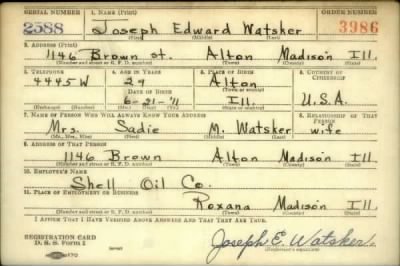 SERIAL NUMBER 1. NAME (Print) ORDER NUMBER
2588 Joseph Edward Watsker 3986
(First) (Middle) (Last)
2. ADDRESS (Print)
1146 Brown st. Alton Madison Ill.
(Number and street or R. F. D. number) (Town) (County) (State)
3. TELEPHONE 4. AGE IN YEARS 5. PLACE OF BIRTH 6. COUNTRY OF CITIZENSHIP
4445W 29 Alton
DATE OF BIRTH (Town or county)
6-21-'11 Ill. U.S.A.
(Exchange) (Number) (Mo.) (Day) (Yr.) (State or country)
7. NAME OF PERSON WHO WILL ALWAYS KNOW YOUR ADDRESS 8. RELATIONSHIP OF THAT PERSON
Mrs. Sadie M. Watsker wife
(Mr., Mrs., Miss) (First) (Middle) (Last)
9. ADDRESS OF THAT PERSON
1146 Brown Alton Madison Ill.
(Number and street or R. F. D. number) (Town) (County) (State)
10. EMPLOYER'S NAME
Shell Oil Co.
11. PLACE OF EMPLOYMENT OR BUSINESS
Roxana Madison Ill
(Number and street or R. F. D. number) (Town) (County) (State)
I AFFIRM THAT I HAVE VERIFIED ABOVE ANSWERS AND THAT THEY ARE TRUE.
REGISTRATION CARD
D. S. S. Form 1 Joseph E. Watsker.
(Registrant's signature)